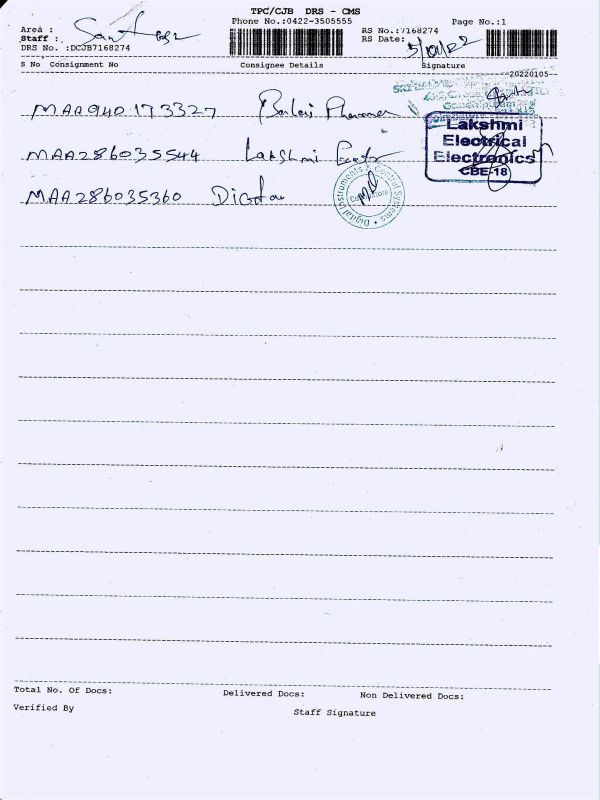 TPC/CJB DRS - CMS
Phone No.:0422-3505555 Page No.:1
Area :
Staff :
RS No.:7168274
RS Date: 5/01/22
DRS No. :DCJB7168274
S No Consignment No Consignee Details Signature
20220105
MAA940173327
MAA286035544 Lakshmi
MAA286035360
Lakshmi
Electrical
Electronics
CBE-18
Digital Instruments & Control Systems
Coimbatore
Total No. Of Docs: Delivered Docs: Non Delivered Docs:
Verified By Staff Signature